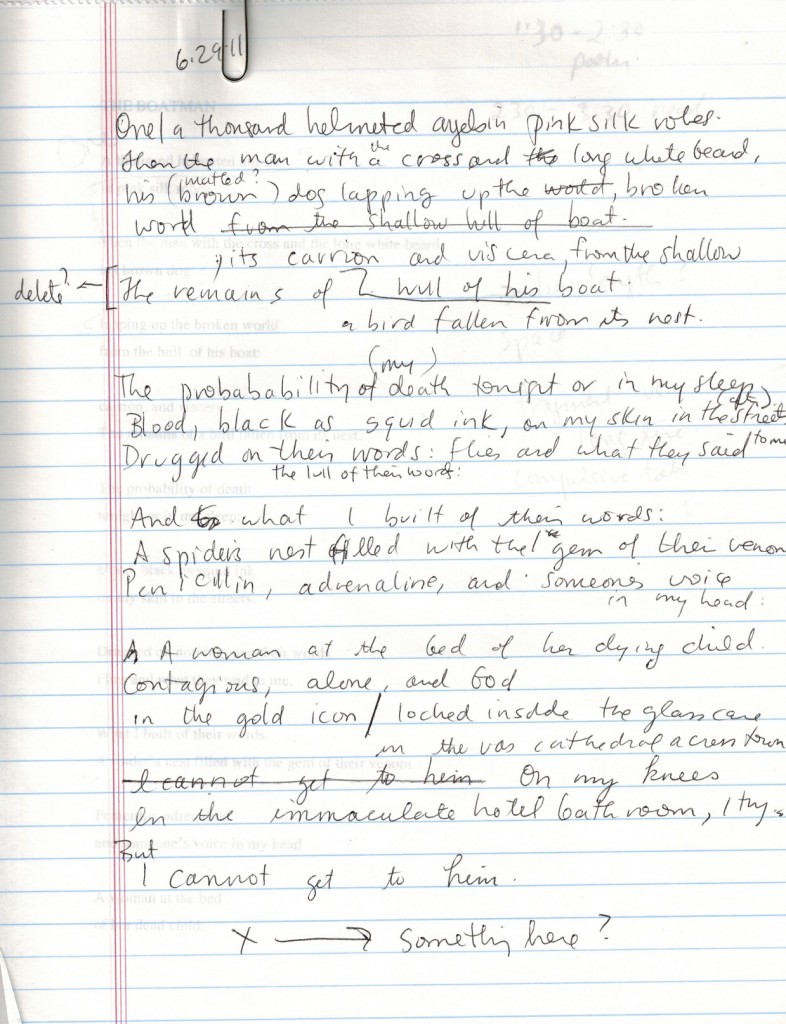 6.29.11
One / a thousand helmeted angels in pink silk robes.
then the man with a the cross and the long white beard,
his (brown matted?) dog lapping up the world, broken
world from the shallow hull of boat.
, its carrion and viscera, from the shallow
delete? ← [the remains of hull of his boat.
a bird fallen from its nest.
(my)
The probabability of death tonight or in my sleep.
Blood, black as squid ink, on my skin in the streets
Drugged on their words: flies and what they said to me
the lull of their words:
And to what I built of their words:
A spider's nest filled with the gem of their venom
Penicillin, adrenaline, and someone's voice
in my head:
A A woman at the bed of her dying child.
Contagious, alone, and God
in the gold icon / locked inside the glass case
in the vas cathedral across town
I cannot get to him On my knees
In the immaculate hotel bathroom, I try.
But
I cannot get to him.
X → Somethig here?
1:30 - 2:30
THE BOATMAN